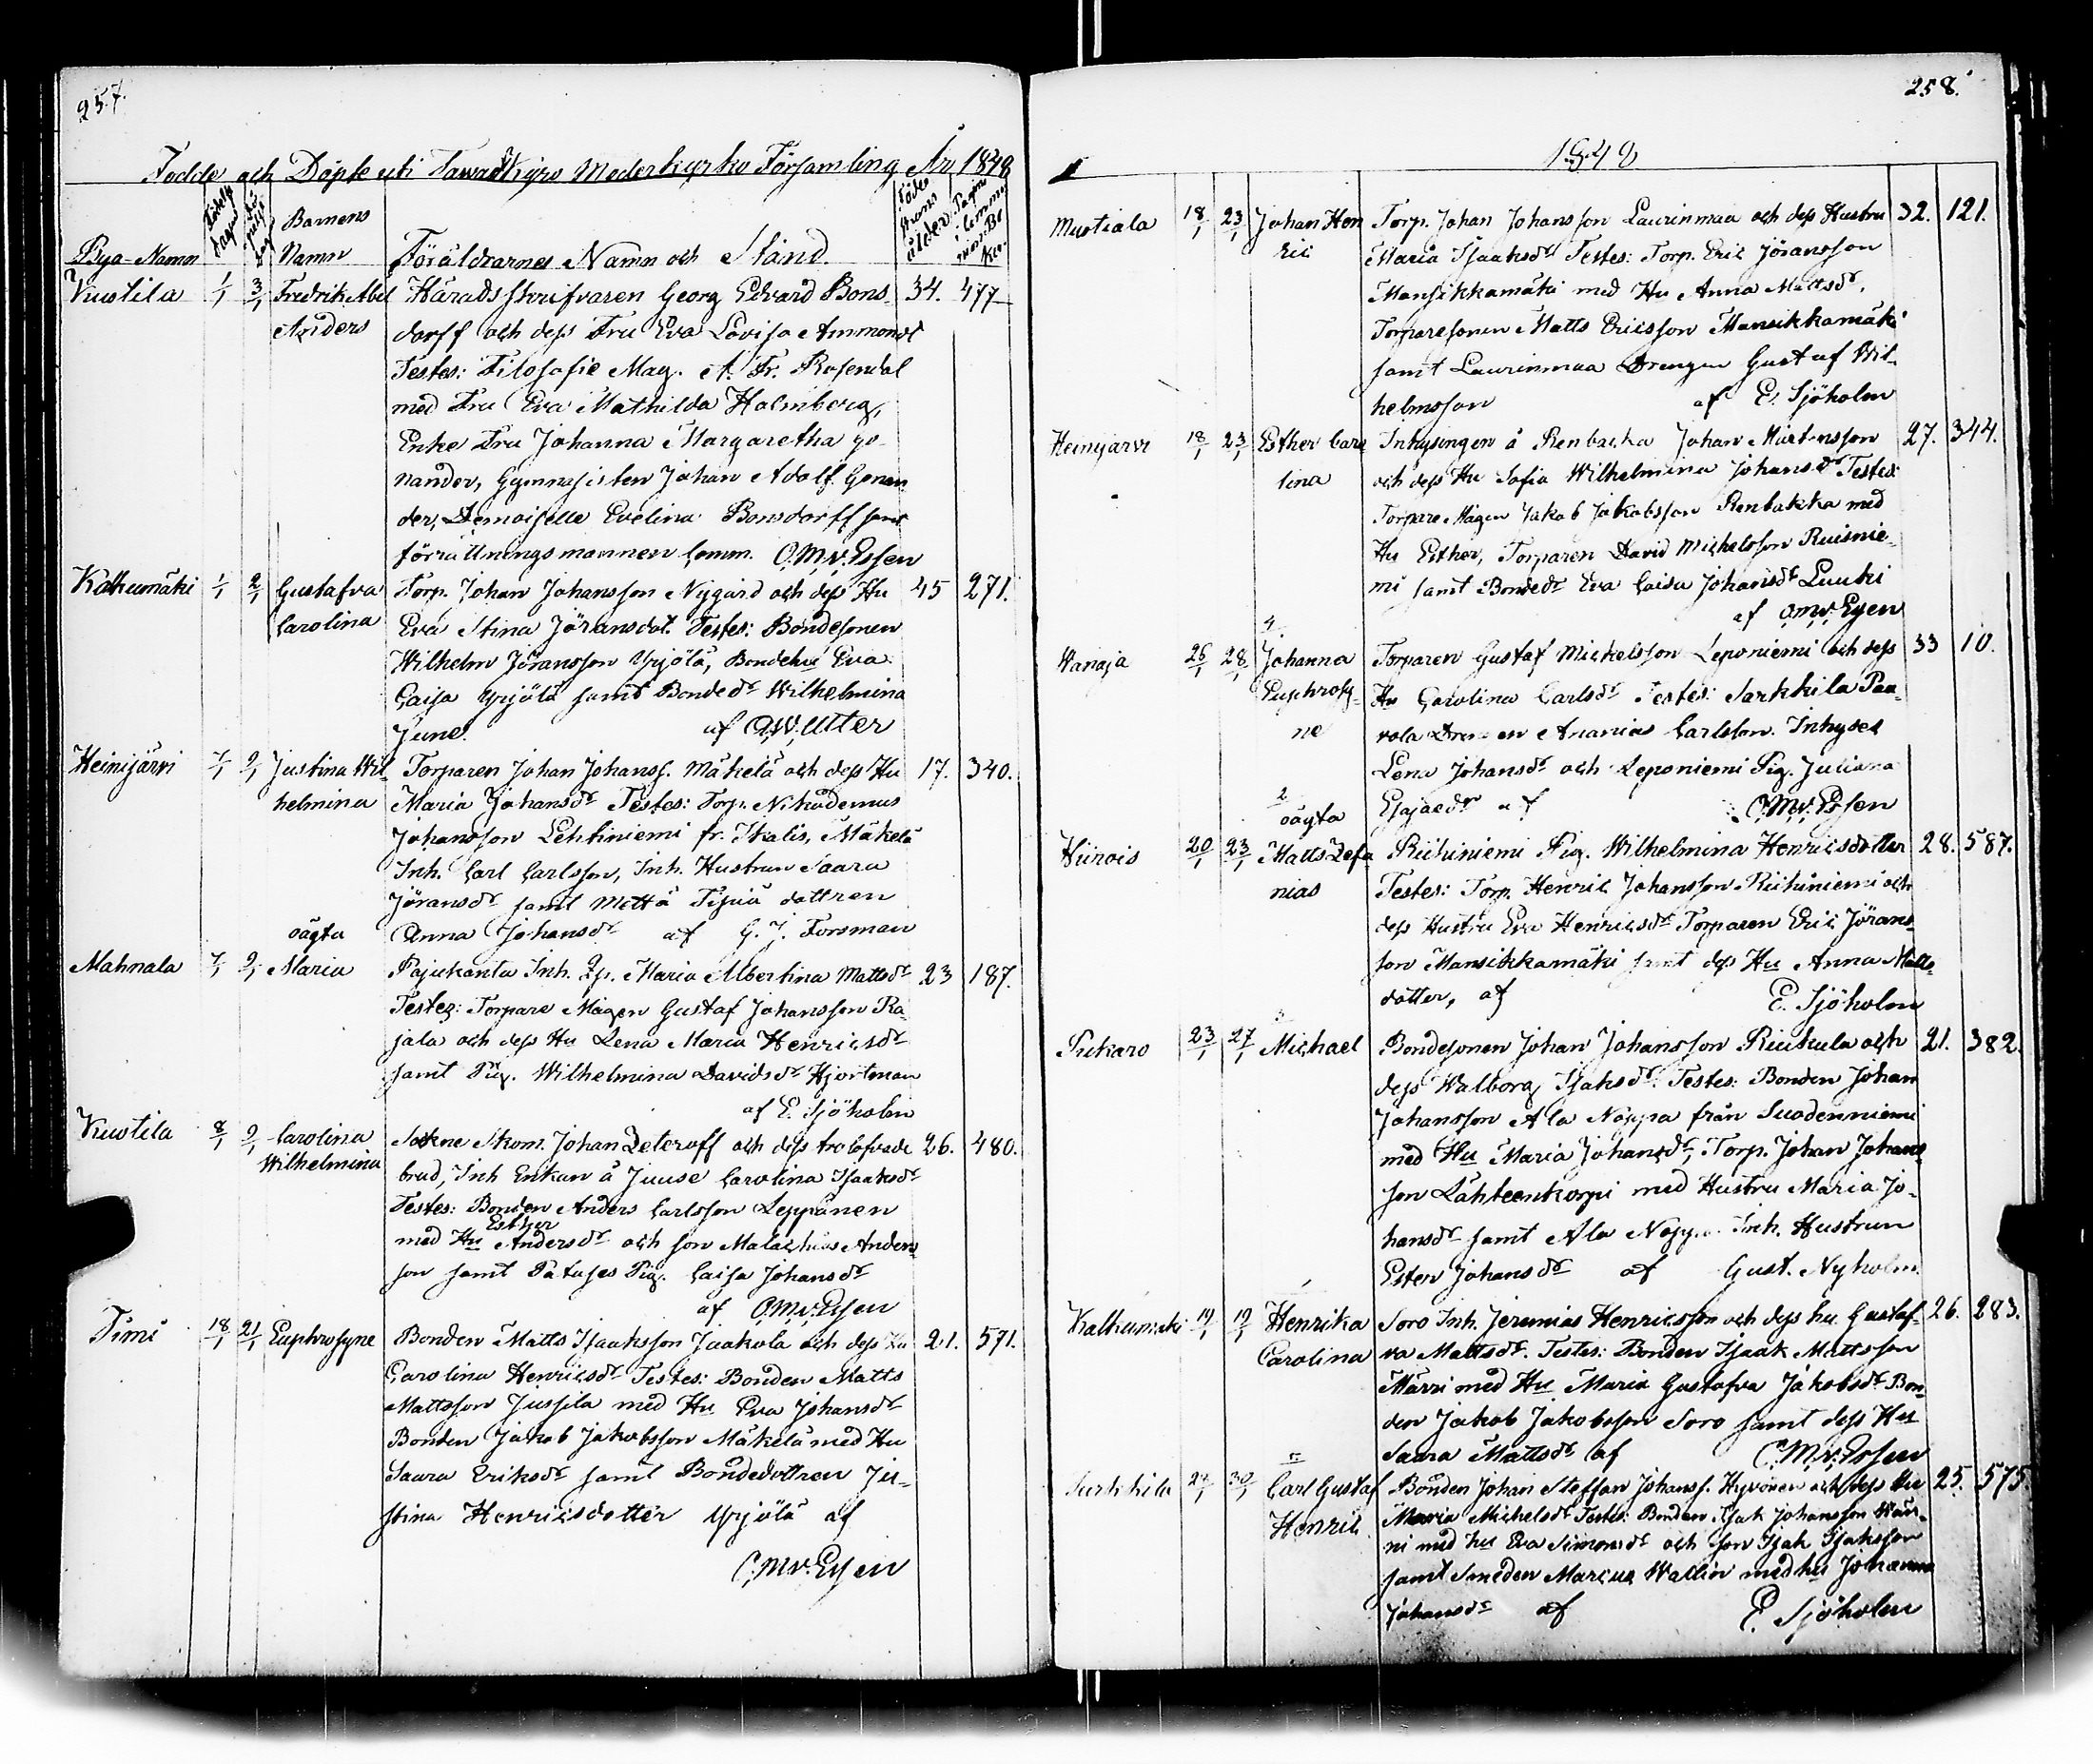 257.
Födde och Döpte uti Tawastkyro Moderkyrko Församling År 1848
By a-Namn
Födelse dagen
Barnens Namn
Föräldrarnes Namn och Stånd.
Föder skans ålder
Pagina i Commu nion Bo ken.
Kustila 1/1 3/1 Fredrik Abel Häradsskrifvaren Georg Edvard Bons- 34. 477
Anders dorff och dess Fru Eva Lovisa Ammondt
Testes: Filosofie Mag. A. Fr. Rosendal
med Fru Eva Mathilda Holmberg,
Enke Fru Johanna Margaretha go-
nander, Gymnasisten Johan Adolf Gonan
der, Demoiselle Evelina Bonsdorff samt
förrättningsmannen Comm. C.M.v.Essen
Kalkumäki 1/1 2/1 Gustafva Torp. Johan Johansson Nygård och dess Hu 45 271.
Carolina Eva Stina Jöransdot. Testes: Bondesonen
Wilhelm Jöransson Yrjölä, Bondehu Eva
Caisa Yrjölä samt Bondedr Wilhelmina
June. af A.W.Utter
Heinijärvi 7/1 9/1 Justina Wil Torparen Johan Johanss. Mäkelä och dess Hu 17. 340.
helmina Maria Johansdr Testes: Torp. Nikodemus
Johansson Lehtiniemi fr. Ikalis, Mäkelä
Inh. Carl Carlsson, Inh. Hustrun Saara
Jöransdr samt dottren
oägta Anna Johansdr af G. J. Forsman
Mahnala 7/1 9/1 Maria Pajukanta Inh. Maria Albertina Mattsdr 23 187.
Testes: Torpare Mågen Gustaf Johansson Ra-
jala och dess Hu Lena Maria Henricsdr
samt Pig. Wilhelmina Davidsdr Hjortman
af E. Sjöholm
Kustila 8/1 9/1 Carolina Sokne Skom. Johan Zeteroff och dess trolofvade 26. 480.
Wilhelmina brud, Inh Enkan å Juuse Carolina Isaaksdr
Testes: Bonden Anders Carlsson Leppänen
Esther
med Hu Andersdr och son Malachias Anders-
son samt Pig. Caisa Johansdr
af C.M.v.Essen
Timi 18/1 21/1 Euphrosyne Bonden Matts Isaaksson Jaakola och dess Hu 21. 571.
Carolina Henricsdr Testes: Bonden Matts
Mattsson Jussila med Hu Eva Johansdr
Bonden Jakob Jakobsson Mäkelä med Hu
Saara Eriksdr samt Bondedottren Ju-
stina Henricsdotter Yrjölä af
C.M.v.Essen
258.
1848
Mustiala 18/1 23/1 Johan Hen Torp. Johan Johansson Laurinmaa och dess Hustru 32. 121.
ric Maria Isaaksdr Testes: Torp. Eric Jöransson
Mansikkamäki med Hu Anna Mattsdr,
Torparesonen Matts Ericsson Mansikkamäki
samt Laurinmaa Drengen Gustaf Wil-
helmsson af E. Sjöholm
Heinijärvi 18/1 23/1 Esther Caro Inhysingen å Renbacka Johan Mårtensson 27. 344.
lina och dess Hu Sofia Wilhelmina Johansdr Testes:
Torpare Mågen Jakob Jakobsson Renbakka med
Hu Esther, Torparen David Michelsson Ruisnie-
mi samt Bondedr Eva Caisa Johansdr Luuki
af C.M.v.Essen
4
Hanaja 26/1 28/1 Johanna Torparen Gustaf Mickelsson Leponiemi och dess 33 10.
Euphrosy- Hu Carolina Carlsdr Testes: Sarkkila Paa-
ne vola Drengen Ananias Carlsson. Inhyses
Lena Johansdr och Leponiemi Pig. Juliana
2
oägta Esajaedr af C.M.v.Essen
Hiirois 20/1 23/1 Matts Zefa Riihiniemi Pig. Wilhelmina Henricsdotter 28. 587.
nias Testes: Torp. Henric Johansson Riihiniemi och
dess Hustru Eva Henricsdr Torparen Eric Jörans-
son Mansikkamäki samt dess Hu Anna Matts-
dotter, af E. Sjöholm
3
23/1 27/1 Michael Bondesonen Johan Johansson Riukula och 21. 382.
dess Walborg Isaksdr. Testes: Bonden Johan
Johansson Ala Noppa från Suodenniemi
med Hu Maria Johansdr, Torp. Johan Johans-
son Lähteenkorpi med Hustru Maria Jo-
hansdr samt Ala Noppa Inh. Hustrun
Ester Johansdr af Gust. Nyholm.
Kalkumäki 19/1 19/1 Henrika Soro Inh. Jeremias Henricsson och dess hu Gustaf- 26. 283.
Carolina va Mattsdr. Testes: Bonden Isaak Mattsson
Märri med Hu Maria Gustafva Jakobsdr Bon-
den Jakob Jakobsson Soro samt dess Hu
Saara Mattsdr af C.M.v.Essen
Sarkkila 30/1 Carl Gustaf Bonden Johan Steffan Johanss. Hyvönen och dess Hu 25. 575.
Henric Maria Michelsdr Testes: Bonden Isak Johansson
ni med hu Eva Simonsdr och son Isak Isaksson
samt Smeden Marcus Wallin med hu Johanna
Johansdr af E. Sjöholm